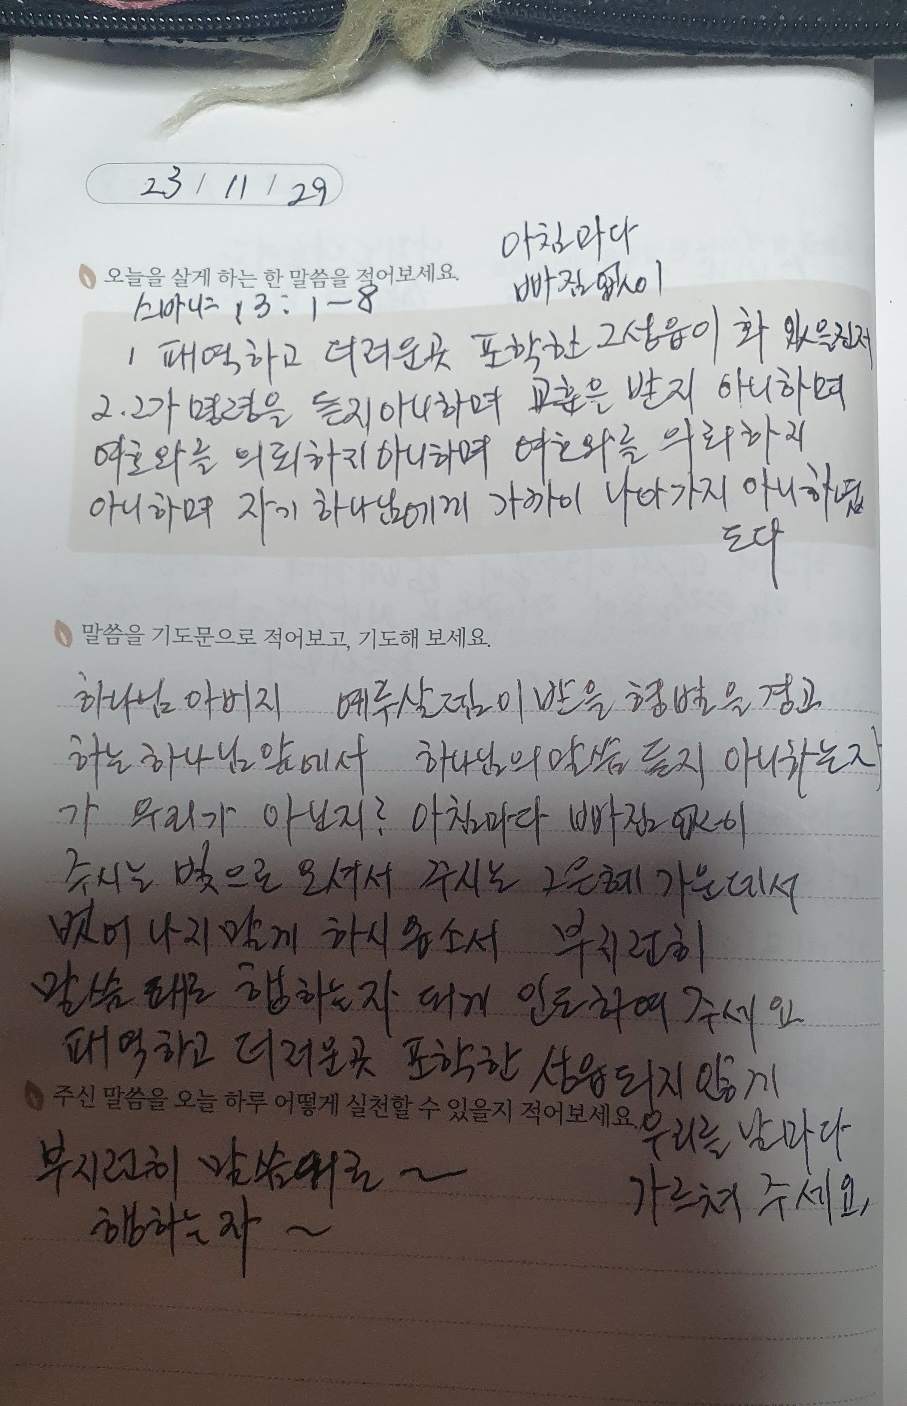 23 / 11 / 29
아침마다
빠짐없이
오늘을 살게 하는 한 말씀을 적어보세요.
스바냐 3:1-8
1 패역하고 더러운곳 포학한 그성읍이 화 있을진저
2.그가 명령을 듣지아니하며 교훈은 받지 아니하며
여호와를 의뢰하지아니하며 여호와를 의뢰하지
아니하며 자기 하나님에게 가까이 나아가지 아니하였
도다
말씀을 기도문으로 적어보고, 기도해 보세요.
하나님 아버지 예루살렘이 받을 형벌을 경고
하는 하나님앞에서 하나님의말씀 듣지 아니하는자
가 우리가 아닌지? 아침마다 빠짐없이
주시는 빛으로 오셔서 주시는 그은혜 가운데서
벗어나지말게 하시옵소서 부지런히
말씀대로 행하는자 되게 인도하여 주세요
패역하고 더러운곳 포학한 성읍되지 않게
우리를 날마다
가르쳐 주세요,
주신 말씀을 오늘 하루 어떻게 실천할 수 있을지 적어보세요.
부지런히 말씀대로 ~
행하는자 ~